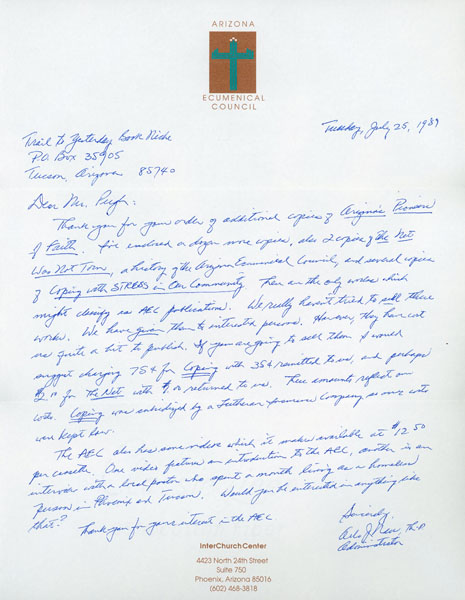 ARIZONA
ECUMENICAL
COUNCIL
Tuesday, July 25, 1989
Trail to Yesterday Book Niche
P.O. Box 35905
Tucson, Arizona 85740
Dear Mr.
Thank you for your order of additional copies of Arizona's Pioneers
of Faith. I've enclosed a dozen more copies, also 2 copies of the Net
Was Not Torn, a history of the Arizona Ecumenical Council, and several copies
of Coping with STRESS in Our Community. These are the only works which
might classify as AEC publications. We really haven't tried to sell these
works. We have given them to interested persons. However, they have cost
us quite a bit to publish. If you are going to sell them I would
suggest charging 75¢ for Coping with 35¢ remitted to us, and perhaps
$2.00 for The Net with $1.00 returned to us. These amounts reflect our
costs. Coping was subsidized by a Lutheran Insurance Company so our costs
were kept low.
The AEC also has some videos which it makes available at $12.50
per cassette. One video features an introduction to the AEC, another is an
interview with a local pastor who spent a month living as a homeless
person in Phoenix and Tucson. Would you be interested in anything like
that?
Thank you for your interest in the AEC.
Sincerely,
Arlo J. Th.D.
Administrator
InterChurchCenter
4423 North 24th Street
Suite 750
Phoenix, Arizona 85016
(602) 468-3818